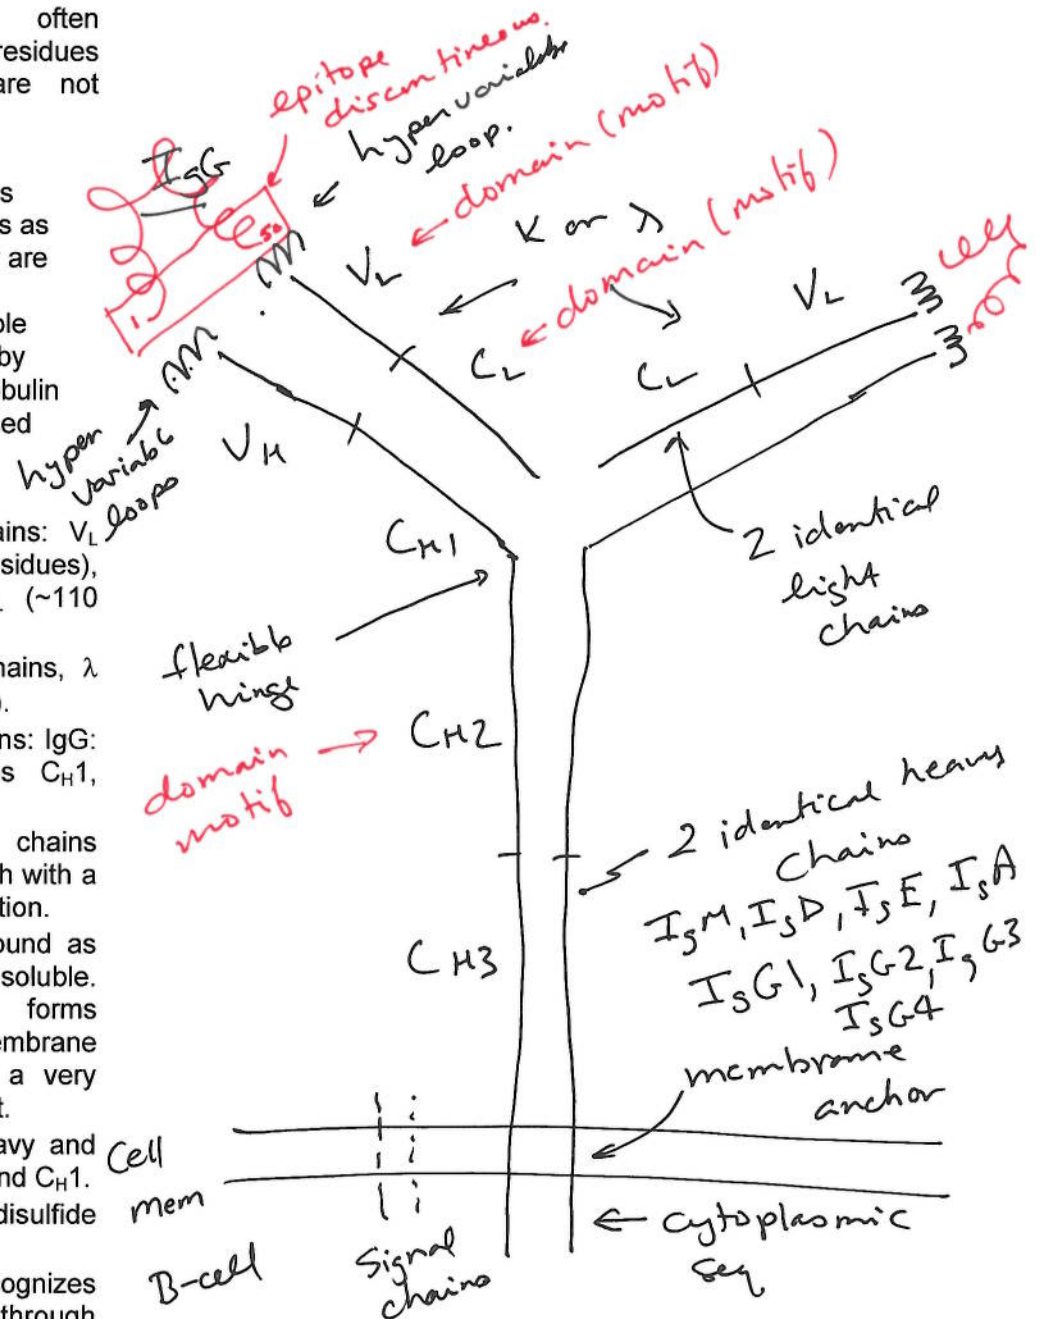 often
residues
are not
s
s as
are
ple
by
bulin
ed
ains: V_L
sidues),
. (~110
hains, λ
).
ns: IgG:
s C_H1,
chains
h with a
tion.
ound as
soluble.
forms
embrane
a very
t.
avy and
nd C_H1.
disulfide
cognizes
through
epitope
discontineous.
hypervariable
loop.
IgG
domain (motif)
domain (motif)
K or λ
V_L
V_L
50
1
C_L
C_L
hyper
variable
loops
V_H
C_H1
2 identical
light
chains
flexible
hinge
C_H2
domain
motif
2 identical heavy
chains
IgM, IgD, IgE, IgA
IgG1, IgG2, IgG3
IgG4
C_H3
membrane
anchor
Cell
mem
cytoplasmic
seq
B-cell
Signal
chains